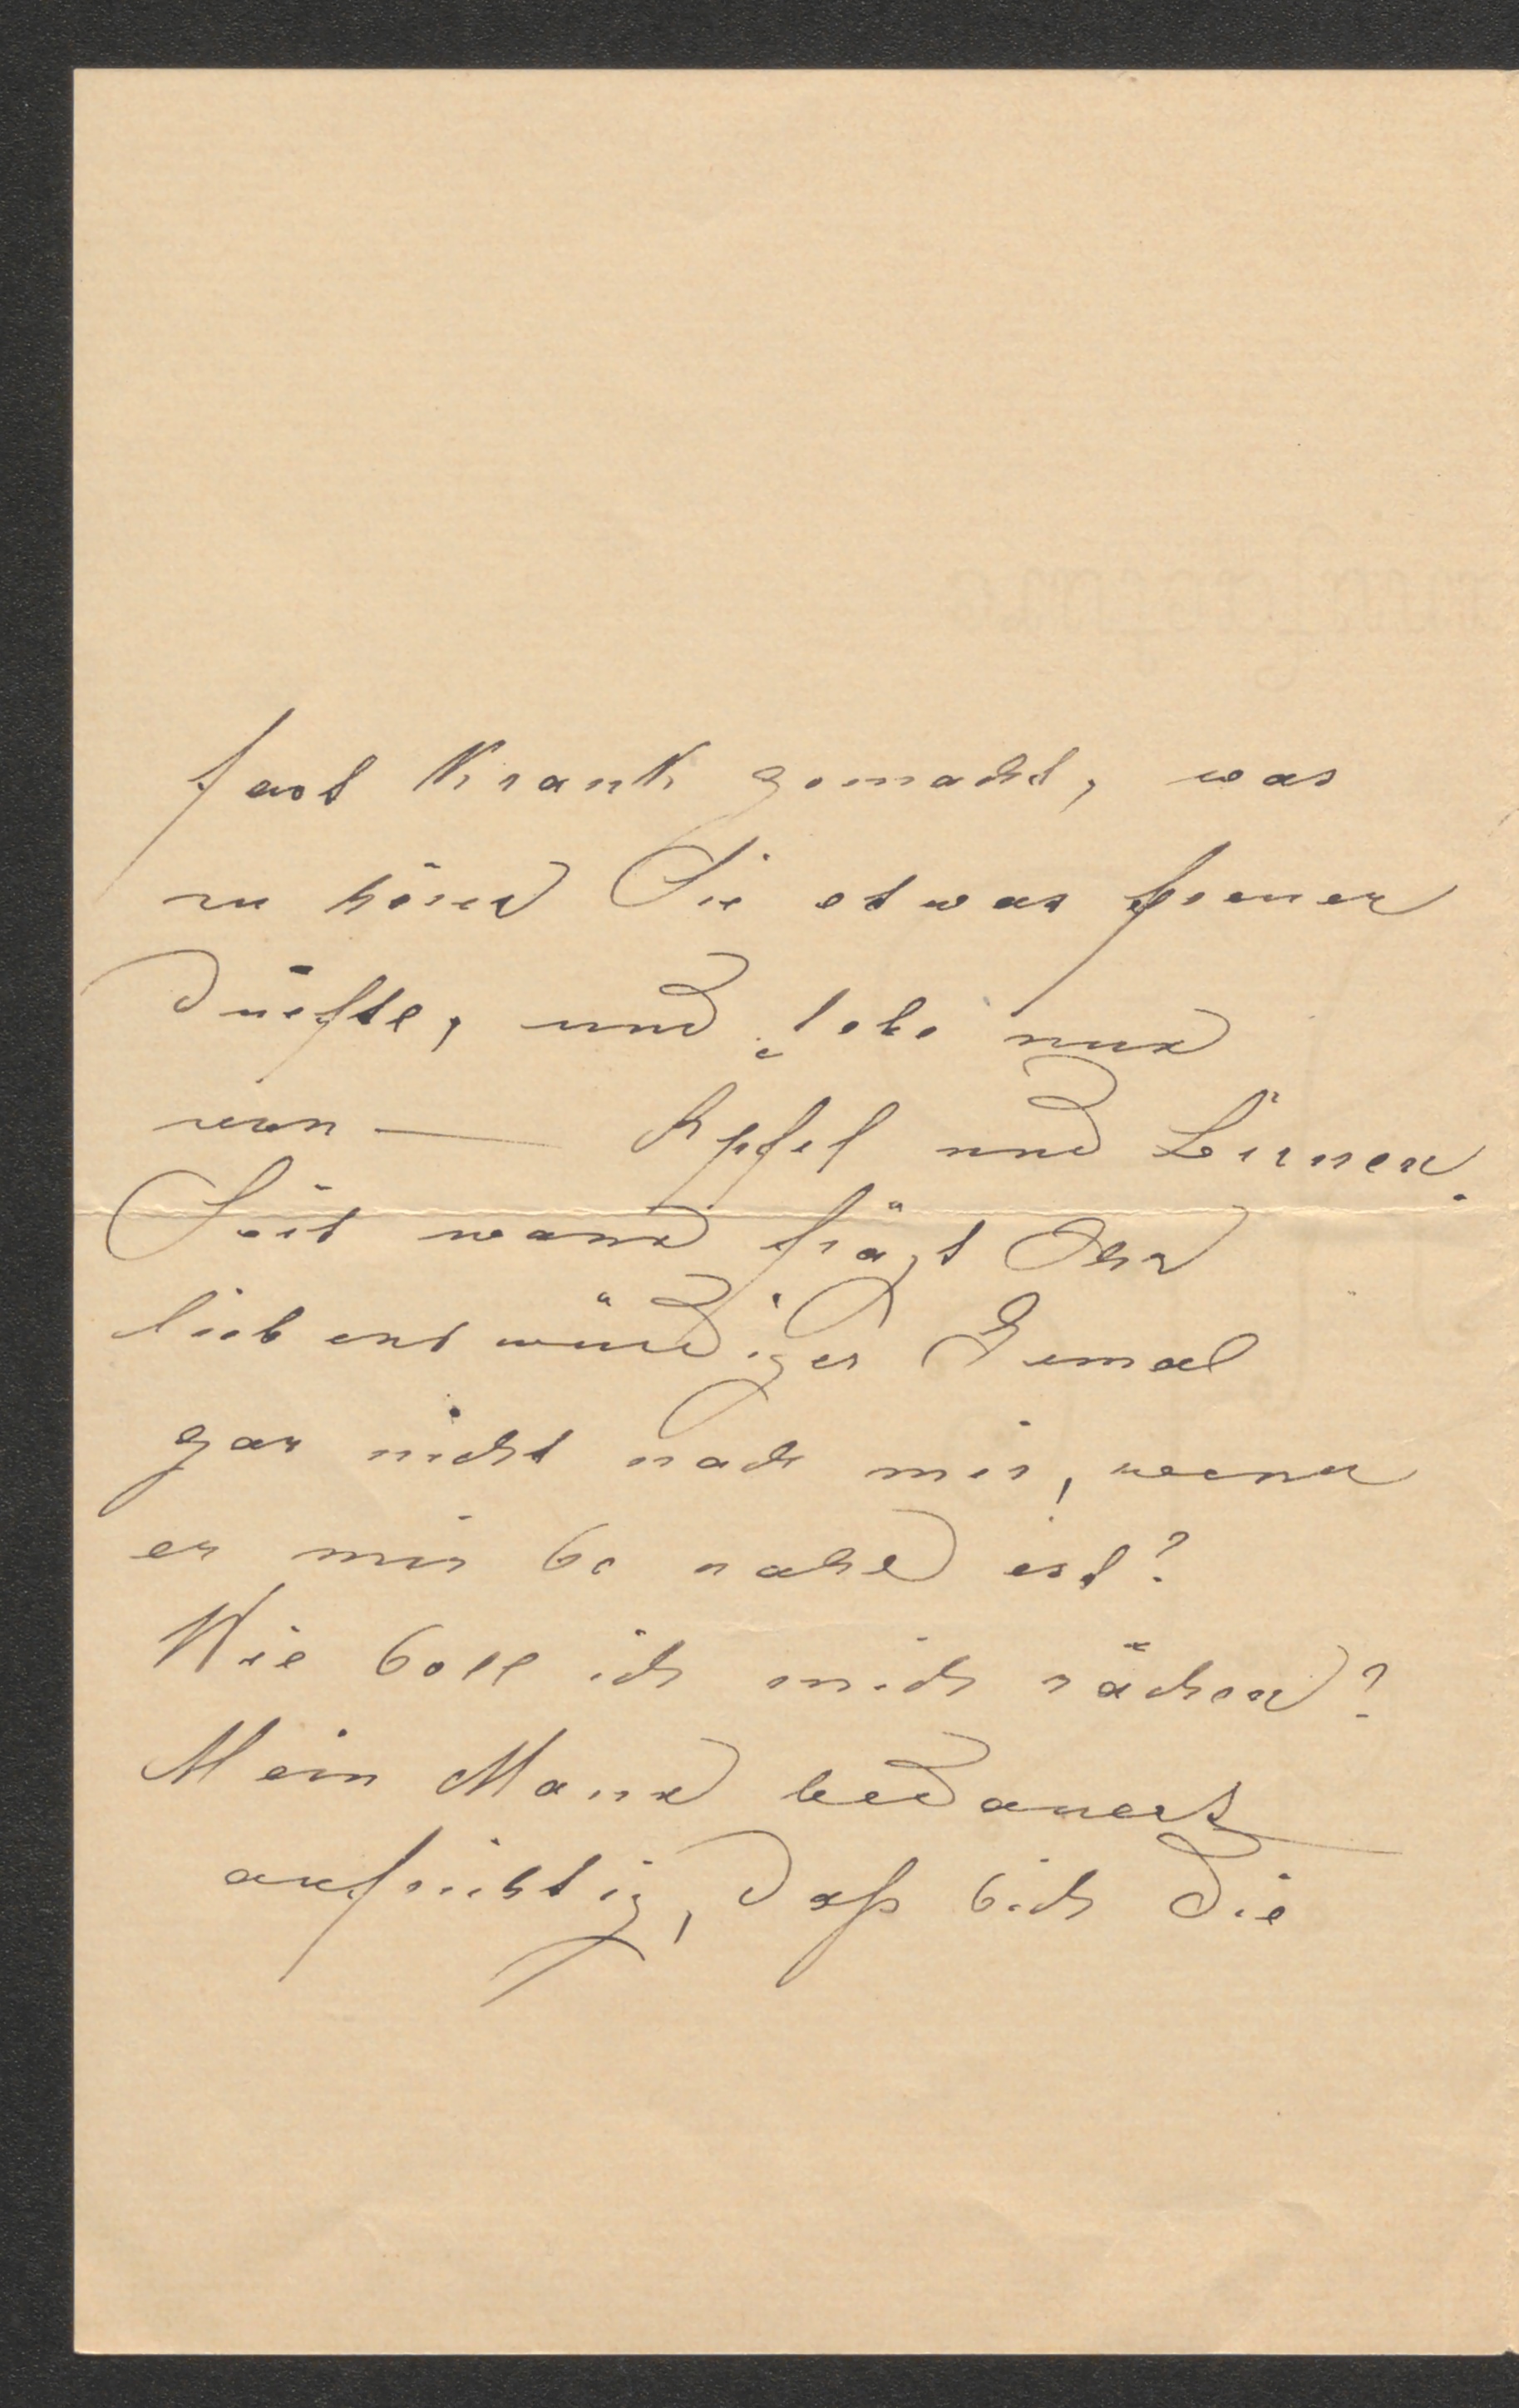 fast krank gemacht, was
zu hören Sie etwas freuen
dürfte, und lebe nur
von — Apfel und Birnen.
Seit wann frägt Ihr
liebenswürdiger Gemal
gar nicht nach mir, wenn
er mir so nahe ist?
Wie soll ich mich rächen?
Mein Mann bedauert
aufrichtig, daß sich die